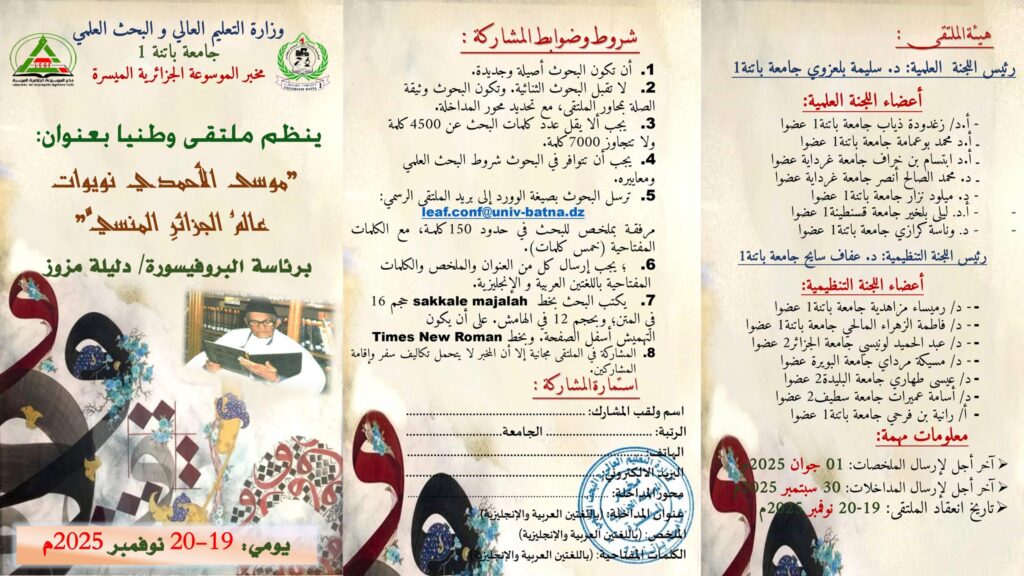 وزارة التعليم العالي و البحث العلمي
جامعة باتنة 1
مخبر الموسوعة الجزائرية الميسرة
ينظم ملتقى وطنيا بعنوان:
"موسى الأحمدي نويوات
عالمُ الجزائرِ المنسيُّ"
برئاسة البروفيسورة/ دليلة مزوز
يومي: 19-20 نوفمبر 2025م
شروط وضوابط المشاركة :
1. أن تكون البحوث أصيلة وجديدة.
2. لا تقبل البحوث الثنائية. وتكون البحوث وثيقة
الصلة بمحاور الملتقى، مع تحديد محور المداخلة.
3. يجب ألا يقل عدد كلمات البحث عن 4500 كلمة
ولا تتجاوز 7000 كلمة.
4. يجب أن تتوافر في البحوث شروط البحث العلمي
ومعاييره.
5. ترسل البحوث بصيغة الوورد إلى بريد الملتقى الرسمي:
leaf.conf@univ-batna.dz
مرفقة بملخص للبحث في حدود 150 كلمة، مع الكلمات
المفتاحية (خمس كلمات).
6. ؛ يجب إرسال كل من العنوان والملخص والكلمات
المفتاحية باللغتين العربية و الإنجليزية.
7. يكتب البحث بخط sakkale majalah حجم 16
في المتن؛ وبحجم 12 في الهامش. على أن يكون
التهميش أسفل الصفحة. وبخط Times New Roman
8. المشاركة في الملتقى مجانية إلا أن المخبر لا يتحمل تكاليف سفر وإقامة
المشاركين.
استمارة المشاركة :
اسم ولقب المشارك:
الرتبة: الجامعة
الهاتف:
البريد الالكتروني:
محور المداخلة:
عنوان المداخلة: (باللغتين العربية والإنجليزية)
الملخص: (باللغتين العربية والإنجليزية)
الكلمات المفتاحية: (باللغتين العربية والإنجليزية)
هيئة الملتقى :
رئيس اللجنة العلمية: د. سليمة بلعزوي جامعة باتنة1
أعضاء اللجنة العلمية:
- أ.د/ زغدودة ذياب جامعة باتنة1 عضوا
- أ.د محمد بوعمامة جامعة باتنة1 عضوا
- أ.د ابتسام بن خراف جامعة غرداية عضوا
- د. محمد الصالح أنصر جامعة غرداية عضوا
- د. ميلود نزار جامعة باتنة1 عضوا
- أ.د. ليلى بلخير جامعة قسنطينة1 عضوا
- د. وناسة كرازي جامعة باتنة1 عضوا
رئيس اللجنة التنظيمية: د. عفاف سايح جامعة باتنة1
أعضاء اللجنة التنظيمية:
- د/ رميساء مزاهدية جامعة باتنة1 عضوا
- د/ فاطمة الزهراء المالحي جامعة باتنة1 عضوا
- د/ عبد الحميد لونيسي جامعة الجزائر2 عضوا
- د/ مسيكة مرداي جامعة البويرة عضوا
- د/ عيسى طهاري جامعة البليدة2 عضوا
- د/ أسامة عميرات جامعة سطيف2 عضوا
- أ/ رانية بن فرحي جامعة باتنة1 عضوا
معلومات مهمة:
آخر أجل لإرسال الملخصات: 01 جوان 2025
آخر أجل لإرسال المداخلات: 30 سبتمبر 2025م
تاريخ انعقاد الملتقى: 19-20 نوفمبر 2025م